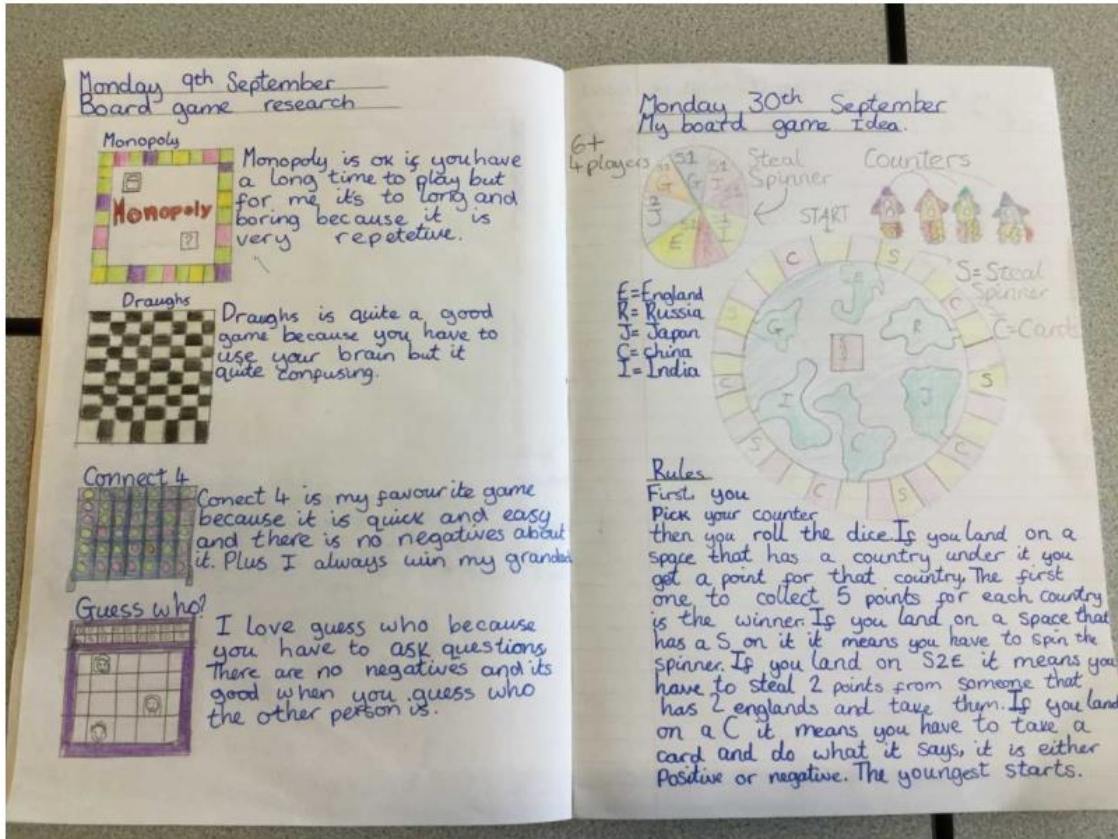 Monday 9th September
Board game research
Monopoly
Monopoly
?
Monopoly is ok if you have
a long time to play but
for me it's to long and
boring because it is
very repetetive.
Draughs
Draughs is quite a good
game because you have to
use your brain but it
quite confusing.
Connect 4
Conect 4 is my favourite game
because it is quick and easy
and there is no negatives about
it. Plus I always win my grandad
Guess who?
I love guess who because
you have to ask questions
There are no negatives and its
good when you guess who
the other person is.
Monday 30th September
My board game Idea.
6+
4 players
Steal
Spinner
Counters
START
S1
G
S1
J
I
R
E
J
G
S=Steal
Spinner
C=Cards
E=England
R=Russia
J=Japan
C=china
I=India
C
S
C
S
C
S
C
S
C
G
R
I
J
C
Rules
First you
Pick your counter
then you roll the dice. If you land on a
space that has a country under it you
get a point for that country. The first
one to collect 5 points for each country
is the winner. If you land on a space that
has a S on it it means you have to spin the
spinner. If you land on S2E it means you
have to steal 2 points from someone that
has 2 englands and take them. If you land
on a C it means you have to take a
card and do what it says, it is either
Positive or negative. The youngest starts.